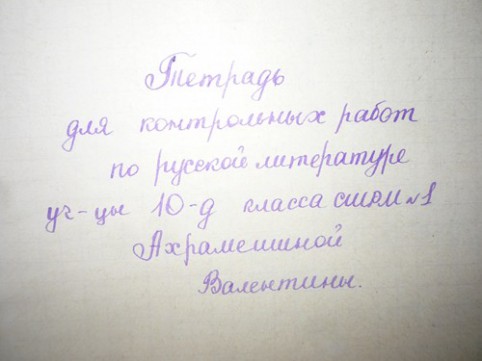 Тетрадь
для контрольных работ
по русской литературе
уч-цы 10-д класса СШРМ №1
Ахрамешиной
Валентины.